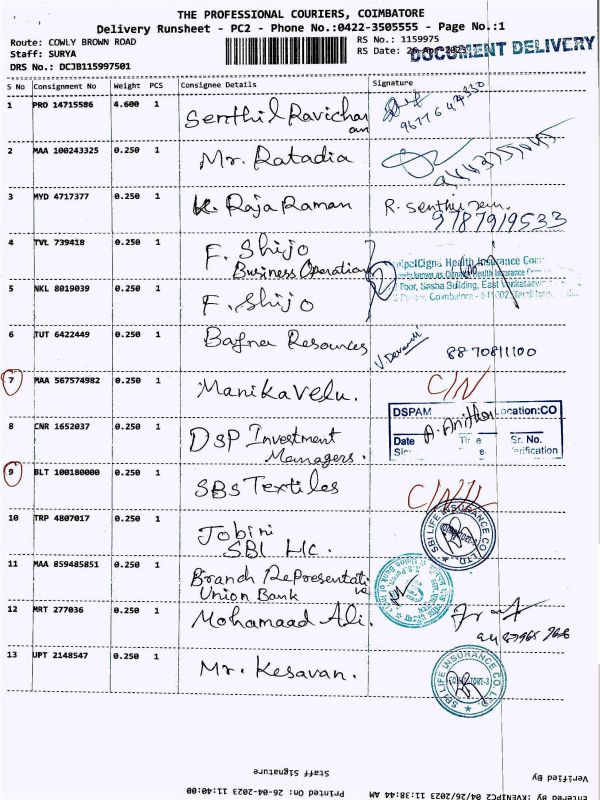 THE PROFESSIONAL COURIERS, COIMBATORE
Delivery Runsheet - PC2 - Phone No.:0422-3505555 - Page No.:1
Route: COWLY BROWN ROAD
RS No.: 1159975
Staff: SURYA
RS Date: 26-Apr-2023
DOCUMENT DELIVERY
DRS No.: DCJB115997501
S No Consignment No Weight PCS Consignee Details Signature
1 PRO 14715586 4.600 1 Senthil Ravichan
2 MAA 100243325 0.250 1 Mr. Ratadia
3 MYD 4717377 0.250 1 K. Raja Raman R. Senthil
9787919533
4 TVL 739418 0.250 1 F. Shijo
Business Operation
Health Insurance Com
Floor, Sasha Building, East
Coimbatore - 641002
5 NKL 8019039 0.250 1 F. Shijo
6 TUT 6422449 0.250 1 Bafna Resources V. Devandi 8870811100
7 MAA 567574982 0.250 1 Manikavelu. C/N
8 CNR 1652037 0.250 1 DSP Investment
Managers.
DSPAM Location:CO
A. Anitha
Date Time Sr. No.
9 BLT 100180000 0.250 1 SBS Textiles
10 TRP 4807017 0.250 1 Jobini
SBI LIC.
SBI LIFE INSURANCE CO. LTD.
11 MAA 859485851 0.250 1 Branch Representative
Union Bank
12 MRT 277036 0.250 1 Mohamaad Ali.
13 UPT 2148547 0.250 1 Mr. Kesavan.
SBI LIFE INSURANCE CO. LTD.
Staff Signature
Verified By
Printed On: 26-04-2023 11:40:00
Entered By :KVENIPC2 04/26/23 11:38:44 AM